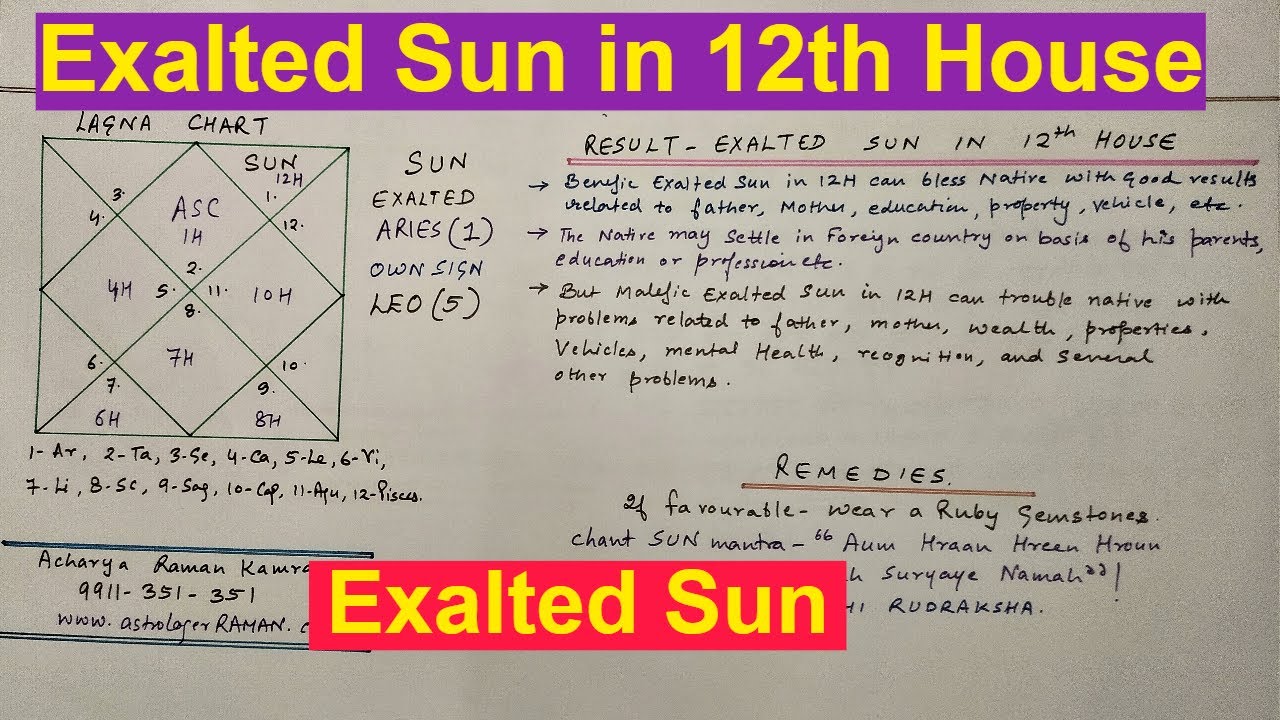 Exalted Sun in 12th House
LAGNA CHART
SUN
12H
3.
1.
4.
ASC
1H
12.
2.
4H
5.
11.
10H
8.
7H
6.
10.
7.
9.
6H
8H
1-Ar, 2-Ta, 3-Ge, 4-Ca, 5-Le, 6-Vi,
7-Li, 8-Sc, 9-Sag, 10-Cap, 11-Aqu, 12-Pisces.
SUN
EXALTED
ARIES (1)
OWN SIGN
LEO (5)
RESULT - EXALTED SUN IN 12th HOUSE
→ Benefic Exalted Sun in 12H can bless Native with Good results
related to father, Mother, education, property, vehicle, etc.
→ The Native may Settle in Foreign country on basis of his parents,
education or profession etc.
→ But Malefic Exalted Sun in 12H can trouble native with
problems related to father, mother, wealth, properties.
Vehicles, mental Health, recognition, and Several
other problems.
REMEDIES.
If favourable - wear a Ruby Gemstones.
chant SUN mantra - "Aum Hraan Hreen Hroun
Suryaye Namah"|
RUDRAKSHA.
Acharya Raman
9911-351-351
www.astrologerRAMAN.
Exalted Sun